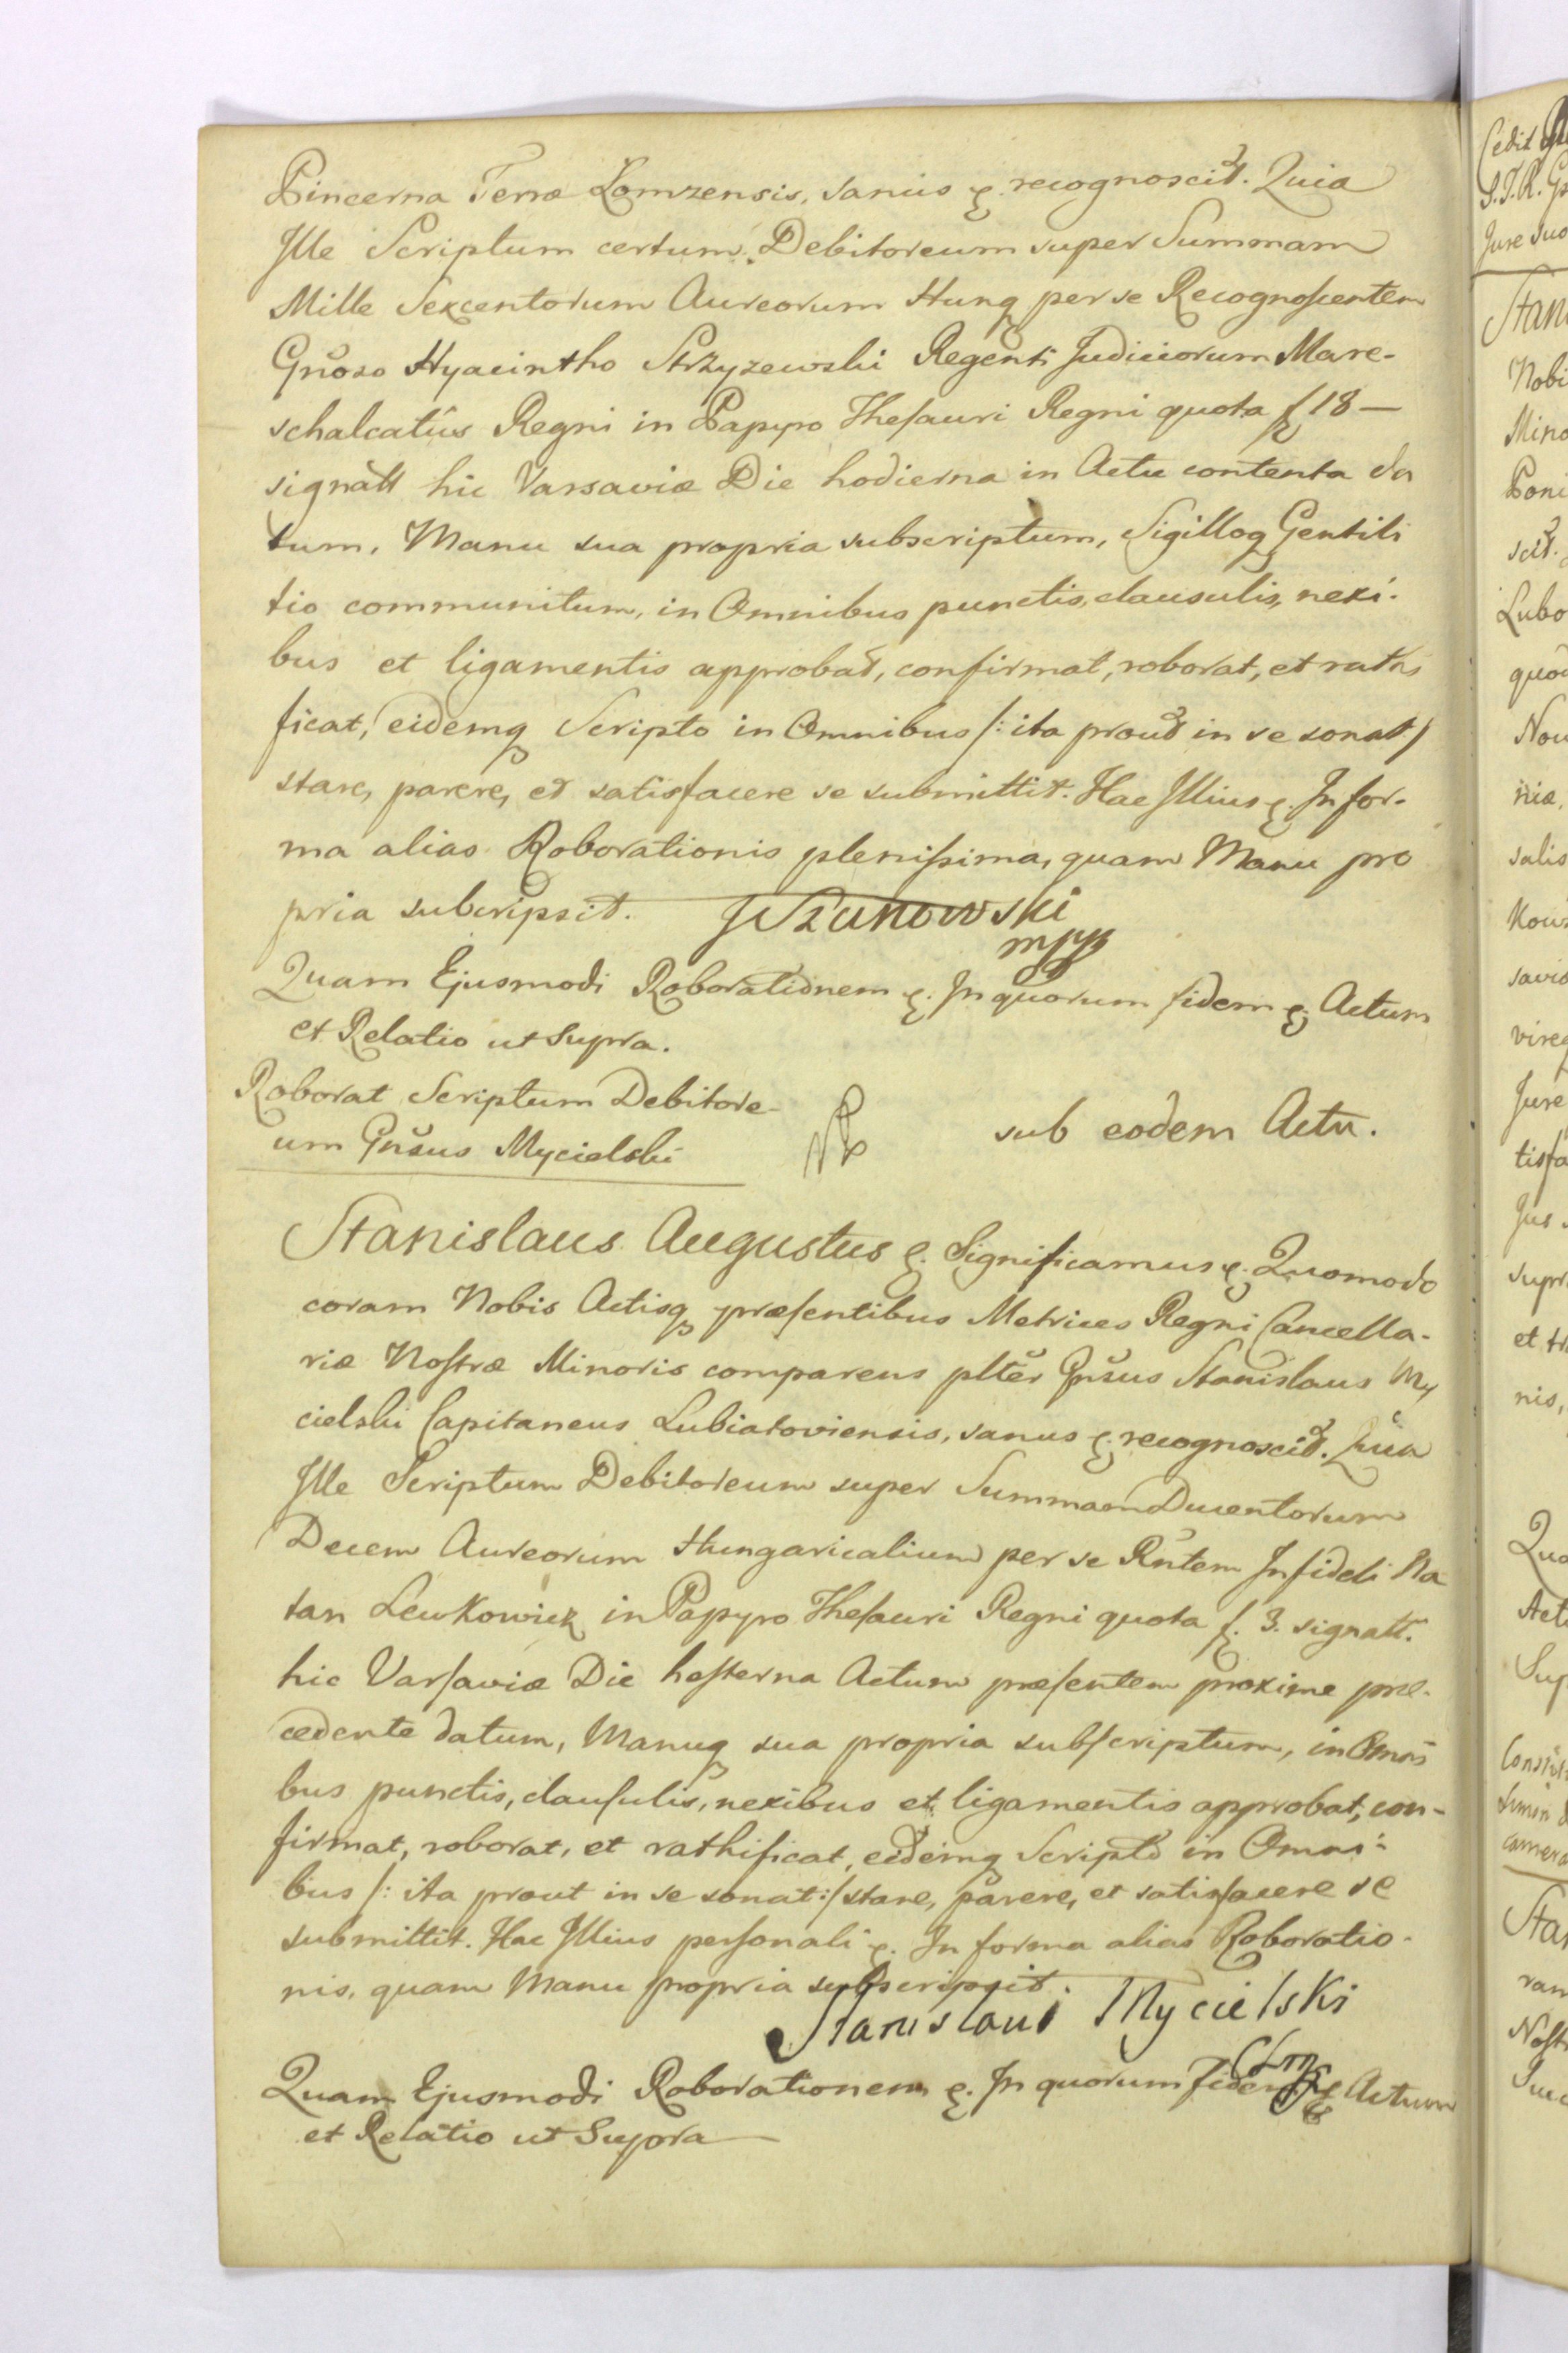 Pincerna Terræ Lomzensis, sanus &. recognoscit. Quia
Ille Scriptum certum Debitoreum super Summam
Mille Sexcentorum Aureorum Hung per se Recognoscentem
Gnoso Hyacintho Strzyzewski Regenti Judiciorum Mare-
schalcatûs Regni in Papyro Thesauri Regni quota f 18 —
signatt hic Varsaviæ Die hodierna in Actu contenta da
tum, Manu sua propria subscriptum, Sigilloq Gentili
tio communitum, in Omnibus punctis, clausulis, nexi-
bus et ligamentis approbat, confirmat, roborat, et rathi
ficat, eidemq Scripto in Omnibus /: ita prout in se sonat /
stare, parere, et satisfacere se submittit. Hac Illius &. In for-
ma alias Roborationis plenissima, quam Manu pro
pria subscripsit. JSzunowski
mpp
Quam Ejusmodi Roborationem &. In quorum fidem &. Actum
et Relatio ut Supra.
Roborat Scriptum Debitore-
um Gnsus Mycielski
sub eodem Actu.
Stanislaus Augustus &. Significamus &. Quomodo
coram Nobis Actisq præsentibus Metrices Regni Cancella-
riæ Nostræ Minoris comparens plter Gnsus Stanislaus My
cielski Capitaneus Lubiatoviensis, sanus &. recognoscit. Quia
Ille Scriptum Debitoreum super Summam Ducentorum
Decem Aureorum Hungaricalium per se Rntem Infideli Na
tan Lewkowicz in Papyro Thesauri Regni quota f. 3. signatt.
hic Varsaviæ Die hesterna Actum præsentem proxime præ-
cedente datum, Manuq sua propria subscriptum, in Omni
bus punctis, clausulis, nexibus et ligamentis approbat, con-
firmat, roborat, et rathificat, eidemq Scripto in Omni-
bus /: ita prout in se sonat :/ stare, parere, et satisfacere se
submittit. Hac Illius personali &. In forma alias Roboratio-
nis, quam Manu propria subscripsit.
Stanislaus Mycielski
Quam Ejusmodi Roborationem &. In quorum fidem &. Actum
et Relatio ut Supra —